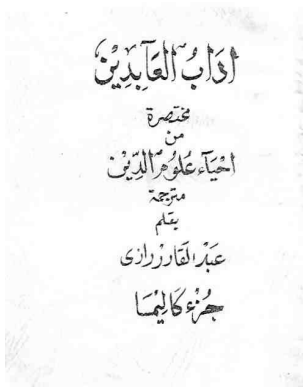 اٰدَابُ الْعَابِدِيْنَ
مختصرة
من
اِحْيَآء عُلُوْمِ الدِّيْنِ
مترجمة
بقلم
عَبْدُ القَادِرْ رَازِى
جُزْء كَالِيْمَا